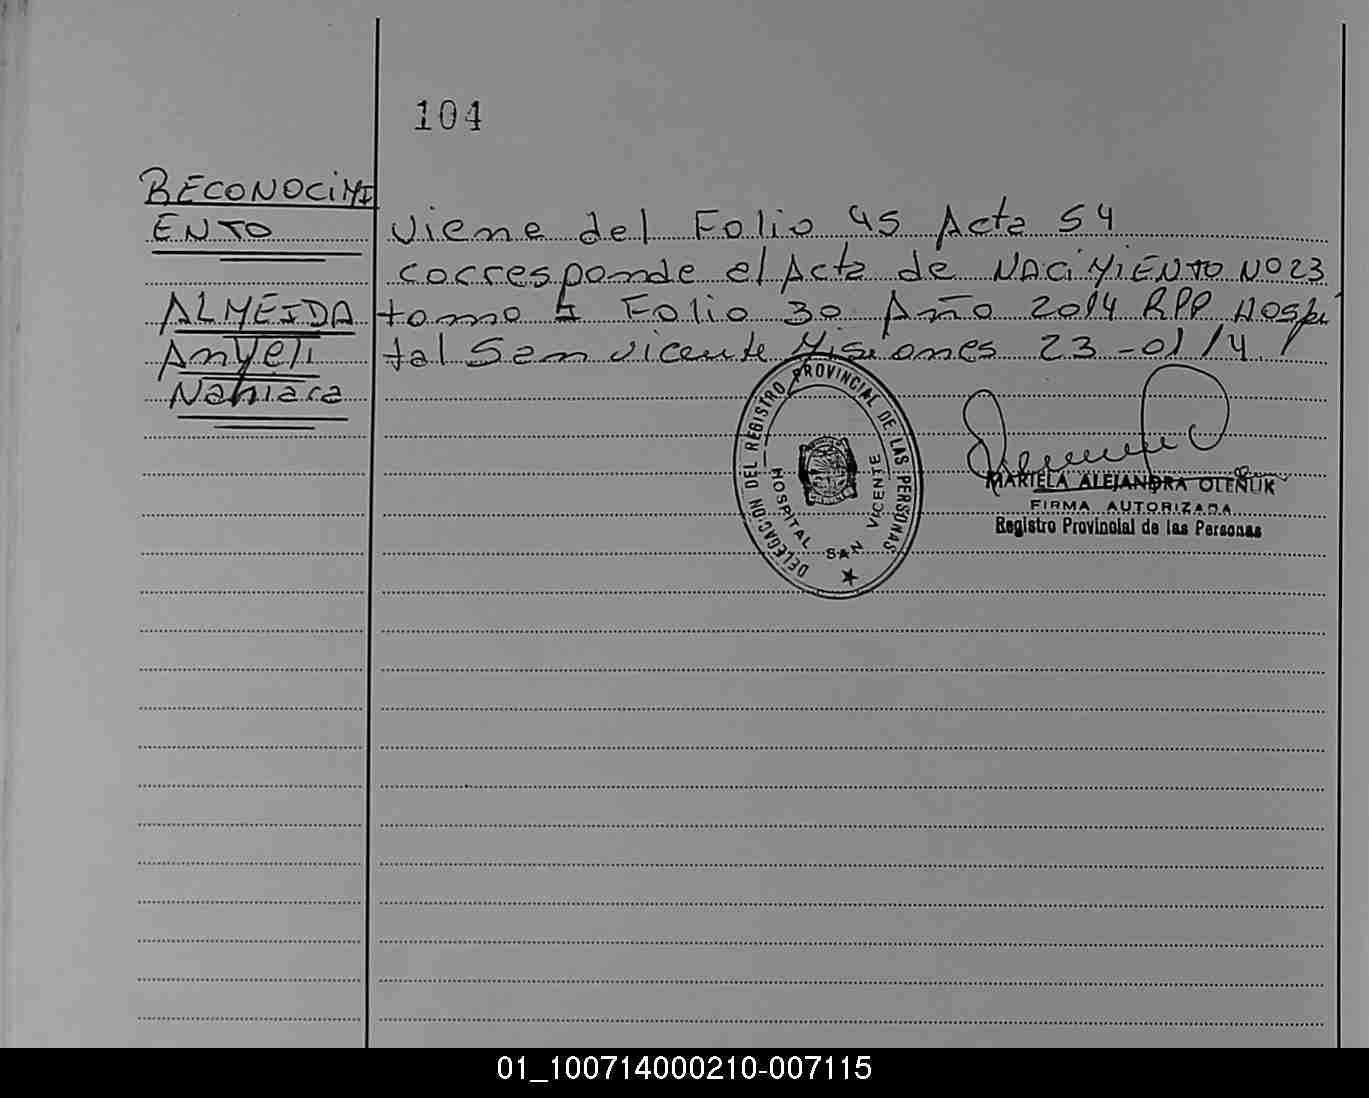 104
RECONOCIMI
ENTO
ALMEIDA
Anyeli
Nahiara
Viene del Folio 45 Acta 54
corresponde el Acta de NACIMIENTO NO 23
tomo I Folio 30 Año 2014 RPP Hospi
tal San Vicente Misiones 23-01/14
DELEGACION DEL REGISTRO PROVINCIAL DE LAS PERSONAS
HOSPITAL SAN VICENTE
MARIELA ALEJANDRA OLEÑUK
FIRMA AUTORIZADA
Registro Provincial de las Personas
01_100714000210-007115